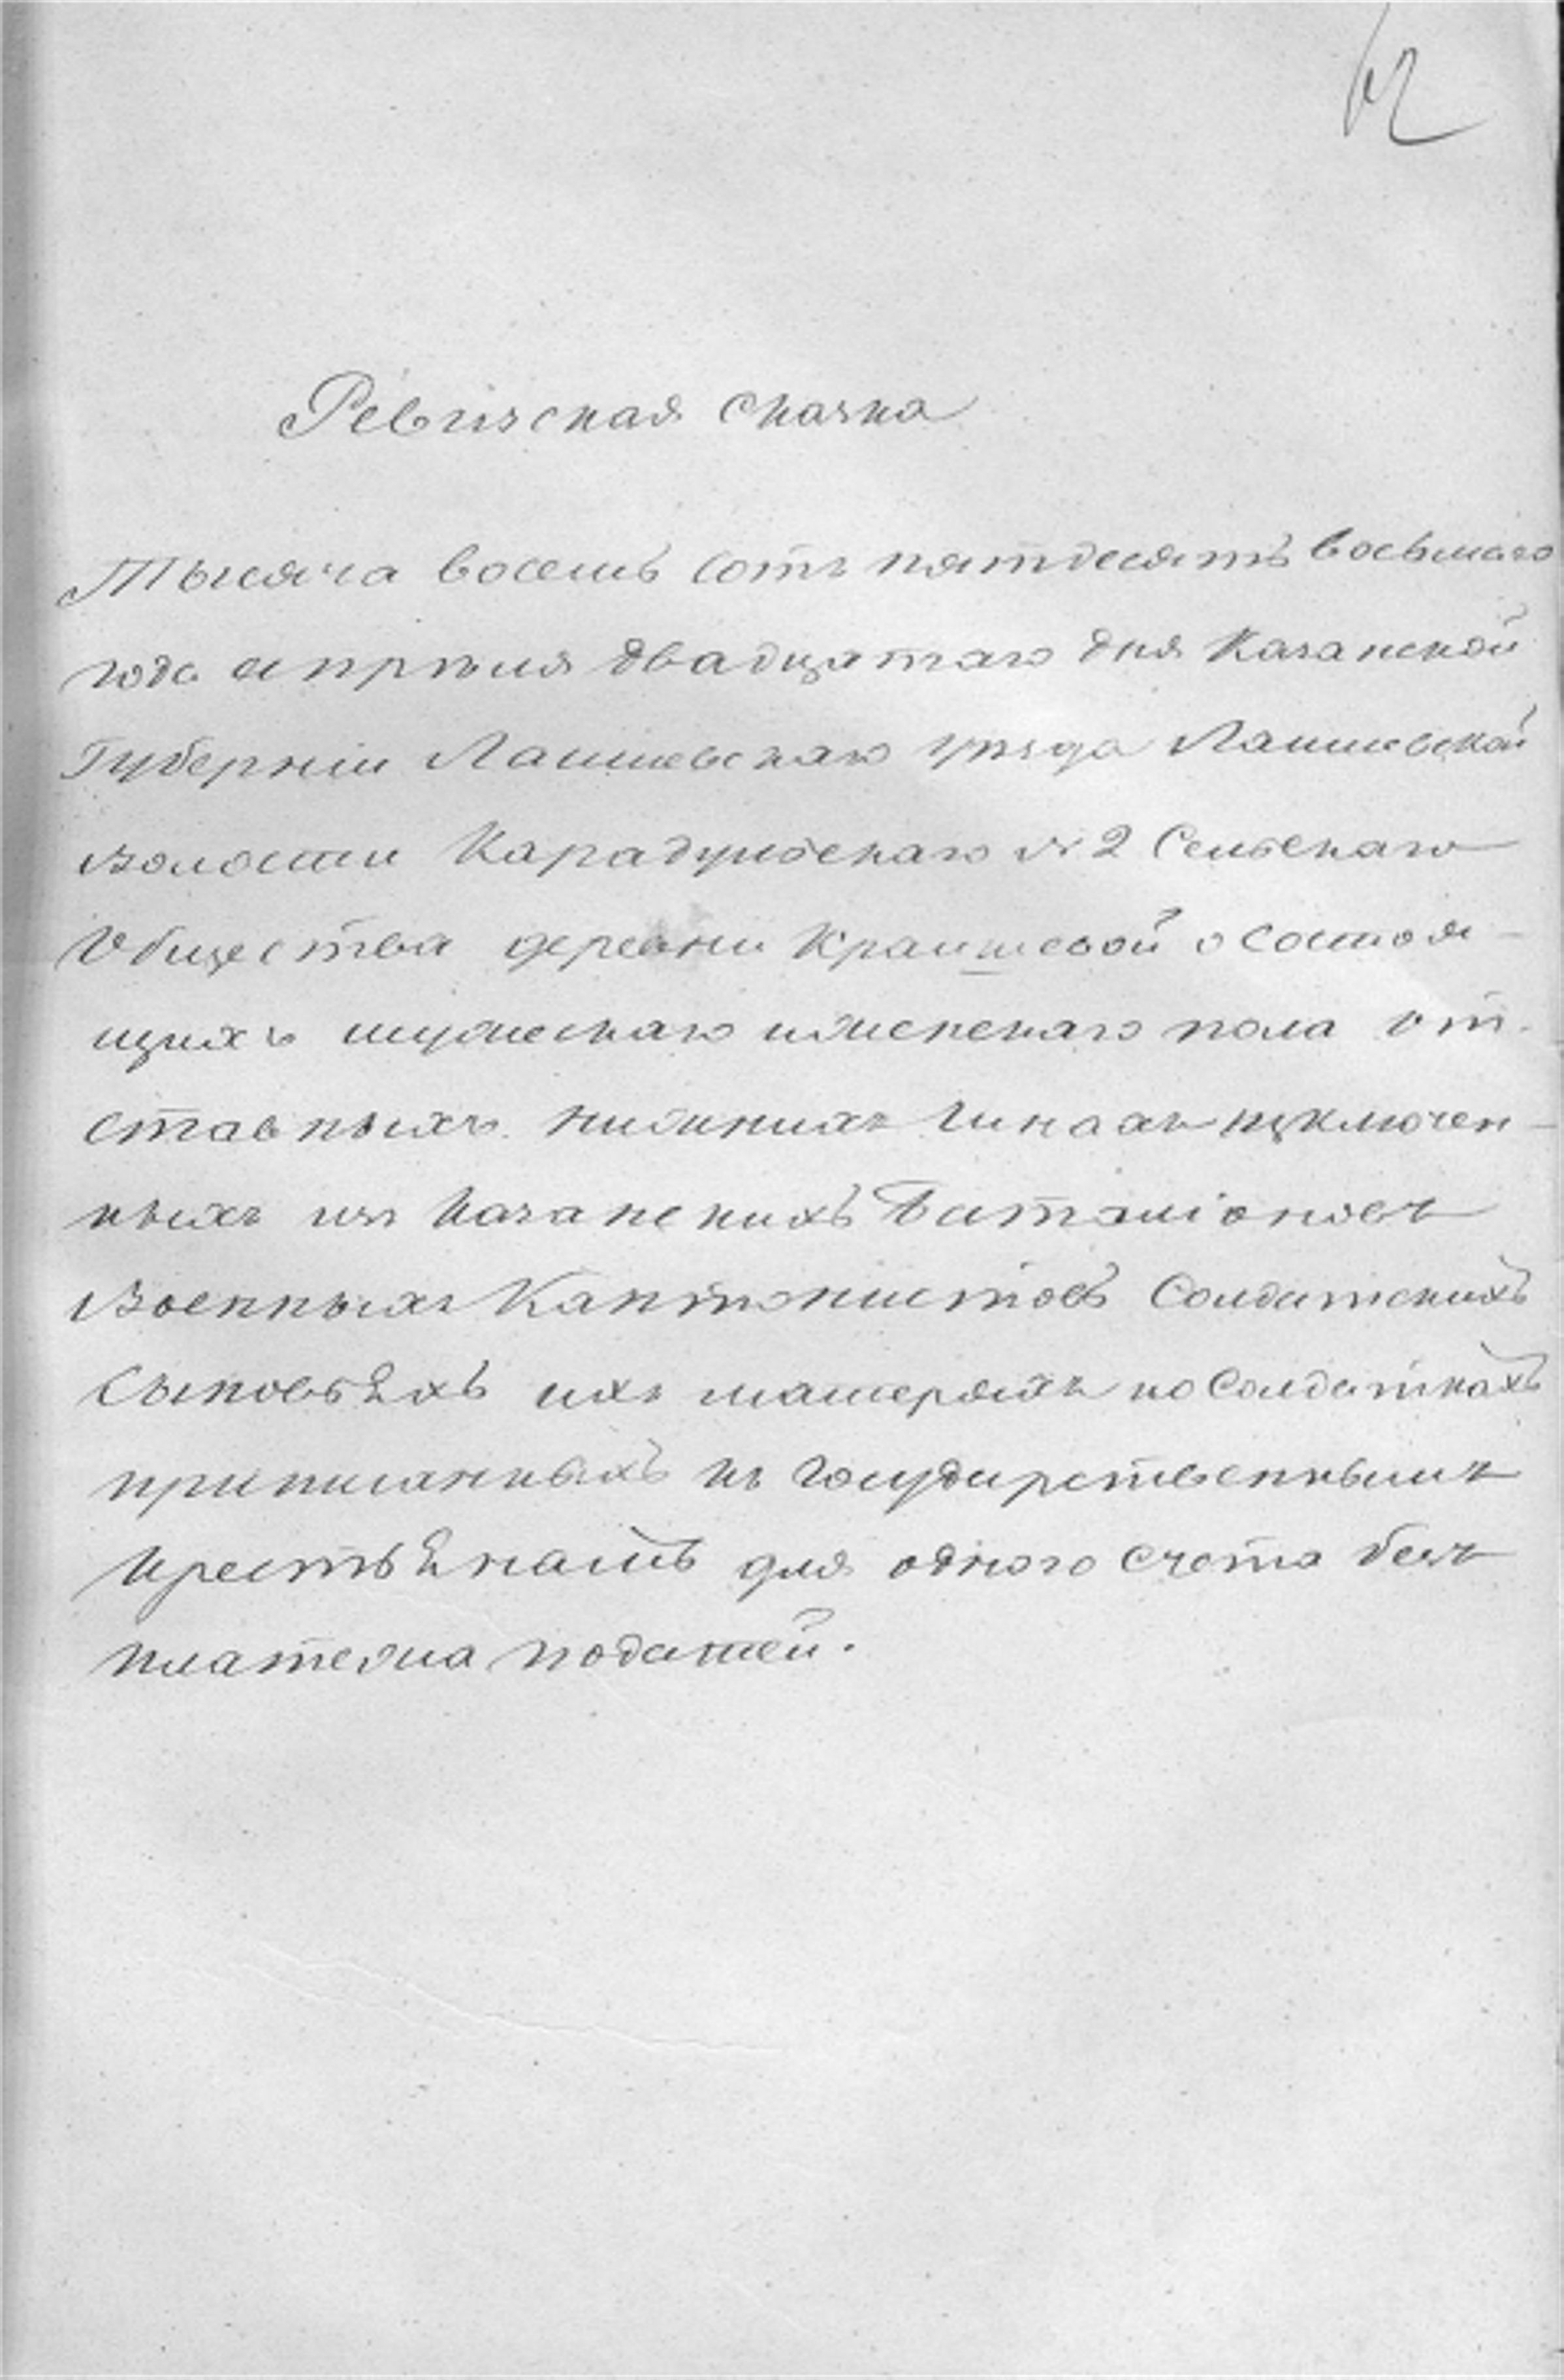 Ревизская сказка
Тысяча восемь сотъ пятдесятъ восьмаго
года апрѣля двадцатаго дня Казанской
Губерніи Лаишевскаго уѣзда Лаишевской
Волости Карадулбскаго № 2 Сельскаго
Общества деревни о состоя-
щихъ мужескаго и женскаго пола от-
ставныхъ нижнихъ чинахъ изключен-
ныхъ изъ Казанскихъ Баталіоновъ
Военныхъ Кантонистовъ Солдатскихъ
Сыновьяхъ ихъ матеряхъ по Солдаткахъ
приписанныхъ къ Государственнымъ
Крестьянамъ для одного счета безъ
платежа податей.